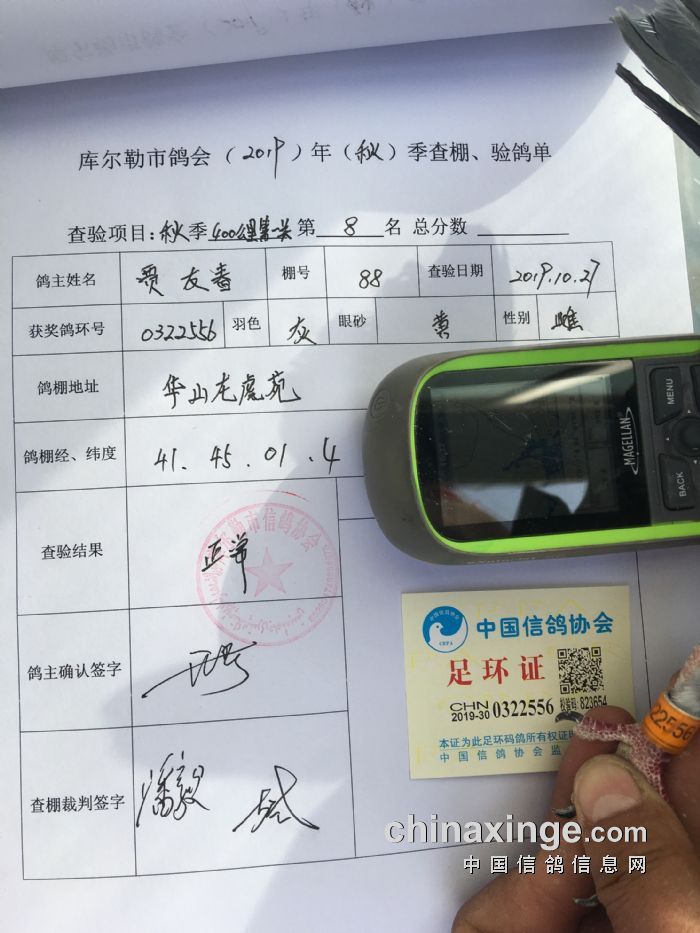 库尔勒市鸽会（2019）年（秋）季查棚、验鸽单
查验项目：秋季400公里第一关 第 8 名 总分数
鸽主姓名 贾友春 棚号 88 查验日期 2019.10.27
获奖鸽环号 0322556 羽色 灰 眼砂 黄 性别 雌
鸽棚地址 华山龙虎苑
鸽棚经、纬度 41.45.01.4
查验结果 正常
市信鸽协会
鸽主确认签字
查棚裁判签字
MAGELLAN
MENU
BACK
CRPA
中国信鸽协会
足环证
CHN
2019-30 0322556
校验码: 823654
本证为此足环码鸽所有权证
中国信鸽协会监
22556
chinaxinge.com
中国信鸽信息网